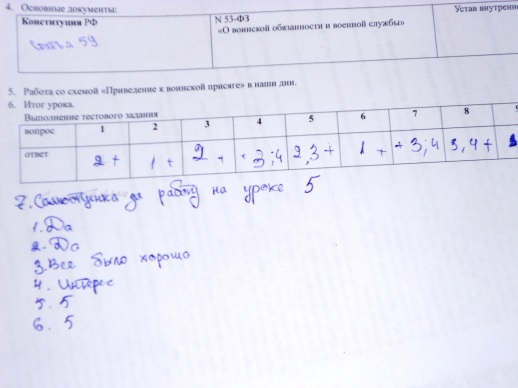 4. Основные документы:
Конституция РФ N 53-ФЗ Устав внутренн
«О воинской обязанности и военной службы»
Статья 59
5. Работа со схемой «Приведение к воинской присяге» в наши дни.
6. Итог урока.
Выполнение тестового задания
вопрос 1 2 3 4 5 6 7 8 9
ответ 2 + 1 + 2 + 3;4 2,3 + 1 + + 3;4 3,4 +
7. Самооценка за работу на уроке 5
1. Да
2. Да
3. Все было хорошо
4. Интерес
5. 5
6. 5